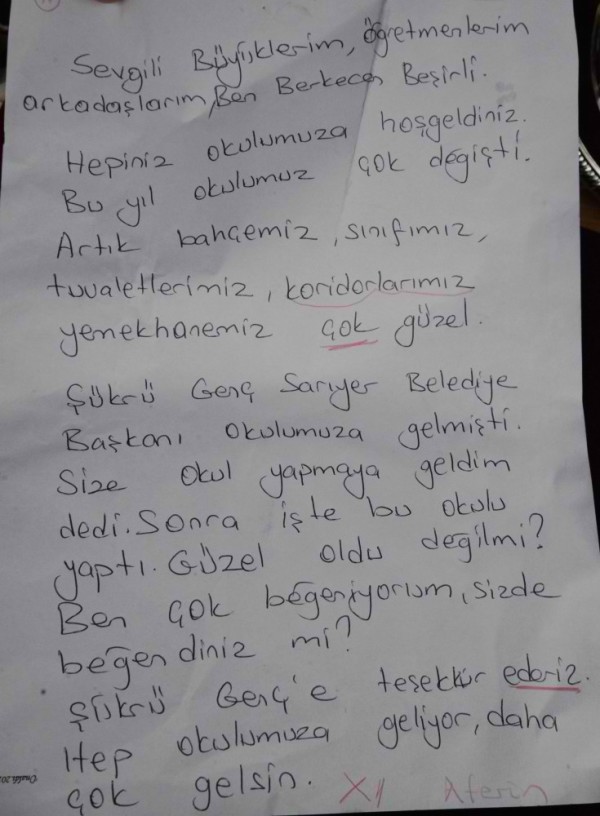 Sevgili Büyüklerim, öğretmenlerim
arkadaşlarım, Ben Berkecen Beşirli.
Hepiniz okulumuza hoşgeldiniz.
Bu yıl okulumuz çok değişti.
Artık bahçemiz, sınıfımız,
tuvaletlerimiz, koridorlarımız
yemekhanemiz çok güzel.
Şükrü Genç Sarıyer Belediye
Başkanı okulumuza gelmişti.
Size okul yapmaya geldim
dedi. Sonra işte bu okulu
yaptı. Güzel oldu değilmi?
Ben çok beğeniyorum, sizde
beğendiniz mi?
Şükrü Genç'e teşekkür ederiz.
Hep okulumuza geliyor, daha
çok gelsin. Aferin